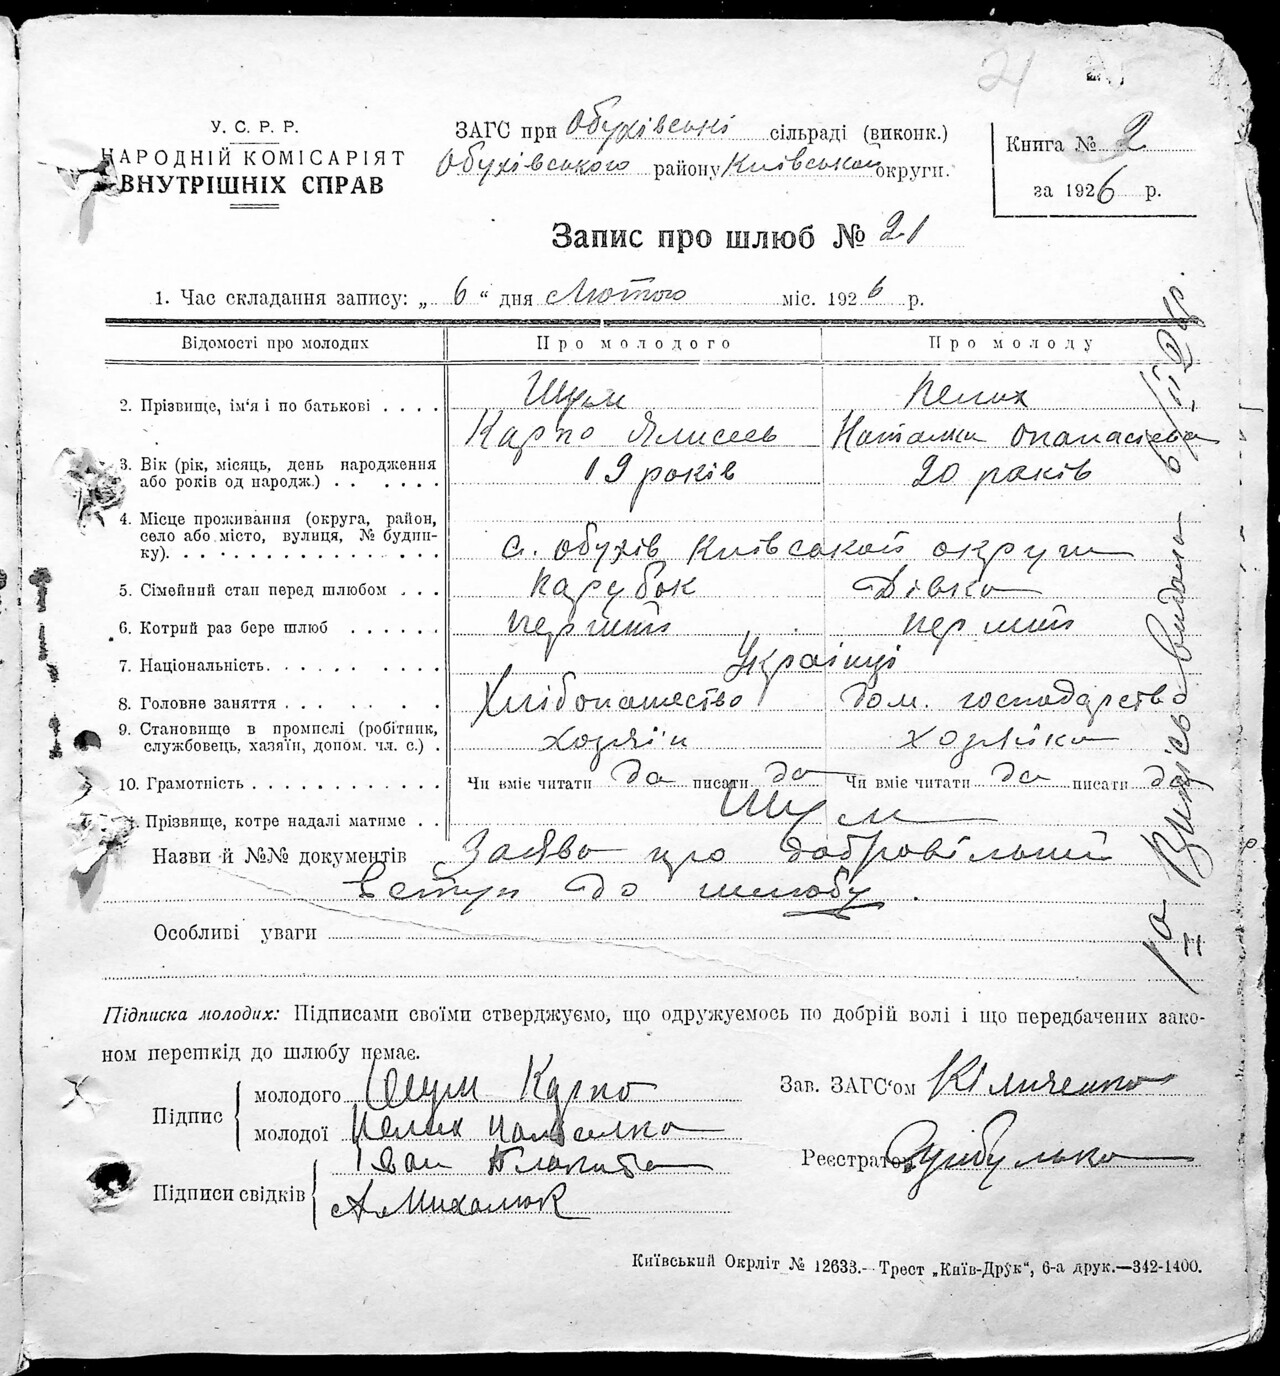 21
У. С. Р. Р.
НАРОДНІЙ КОМІСАРІЯТ
ВНУТРІШНІХ СПРАВ
ЗАГС при Обухівські сільраді (виконк.)
Обухівського району Київської округи.
Книга № 2
за 1926 р.
Запис про шлюб № 21
1. Час складання запису: „ 6 “ дня Лютого міс. 1926 р.
Відомості про молодих Про молодого Про молоду
2. Прізвище, ім'я і по батькові . . . . Шум
Карпо Наталка
3. Вік (рік, місяць, день народження
або років од народж.) . . . . . . . 19 років 20 років
4. Місце проживання (округа, район,
село або місто, вулиця, № будин-
ку). . . . . . . . . . . . . . . . с. Обухів Київської округи
5. Сімейний стан перед шлюбом . . . Парубок Дівка
6. Котрий раз бере шлюб . . . . . . перший перший
7. Національність. . . . . . . . . . Українці
8. Головне заняття . . . . . . . . Хлібопашество дом. господарство
9. Становище в промислі (робітник,
службовець, хазяїн, допом. чл. с.) . хозяїн хозяйка
10. Грамотність . . . . . . . . . . . . Чи вміє читати да писати да Чи вміє читати да писати да
Прізвище, котре надалі матиме . . Шум
Назви й №№ документів Заява про добровільний
вступ до шлюбу.
Особливі уваги
Підписка молодих: Підписами своїми стверджуємо, що одружуємось по добрій волі і що передбачених зако-
ном перешкід до шлюбу немає.
Підпис
молодого Шум Карпо
молодої
Підписи свідків Іван
А. Михалюк
Зав. ЗАГС'ом
Реєстратор
Київський Окрліт № 12633.—Трест „Київ-Друк“, 6-а друк.—342-1400.
Випись видана